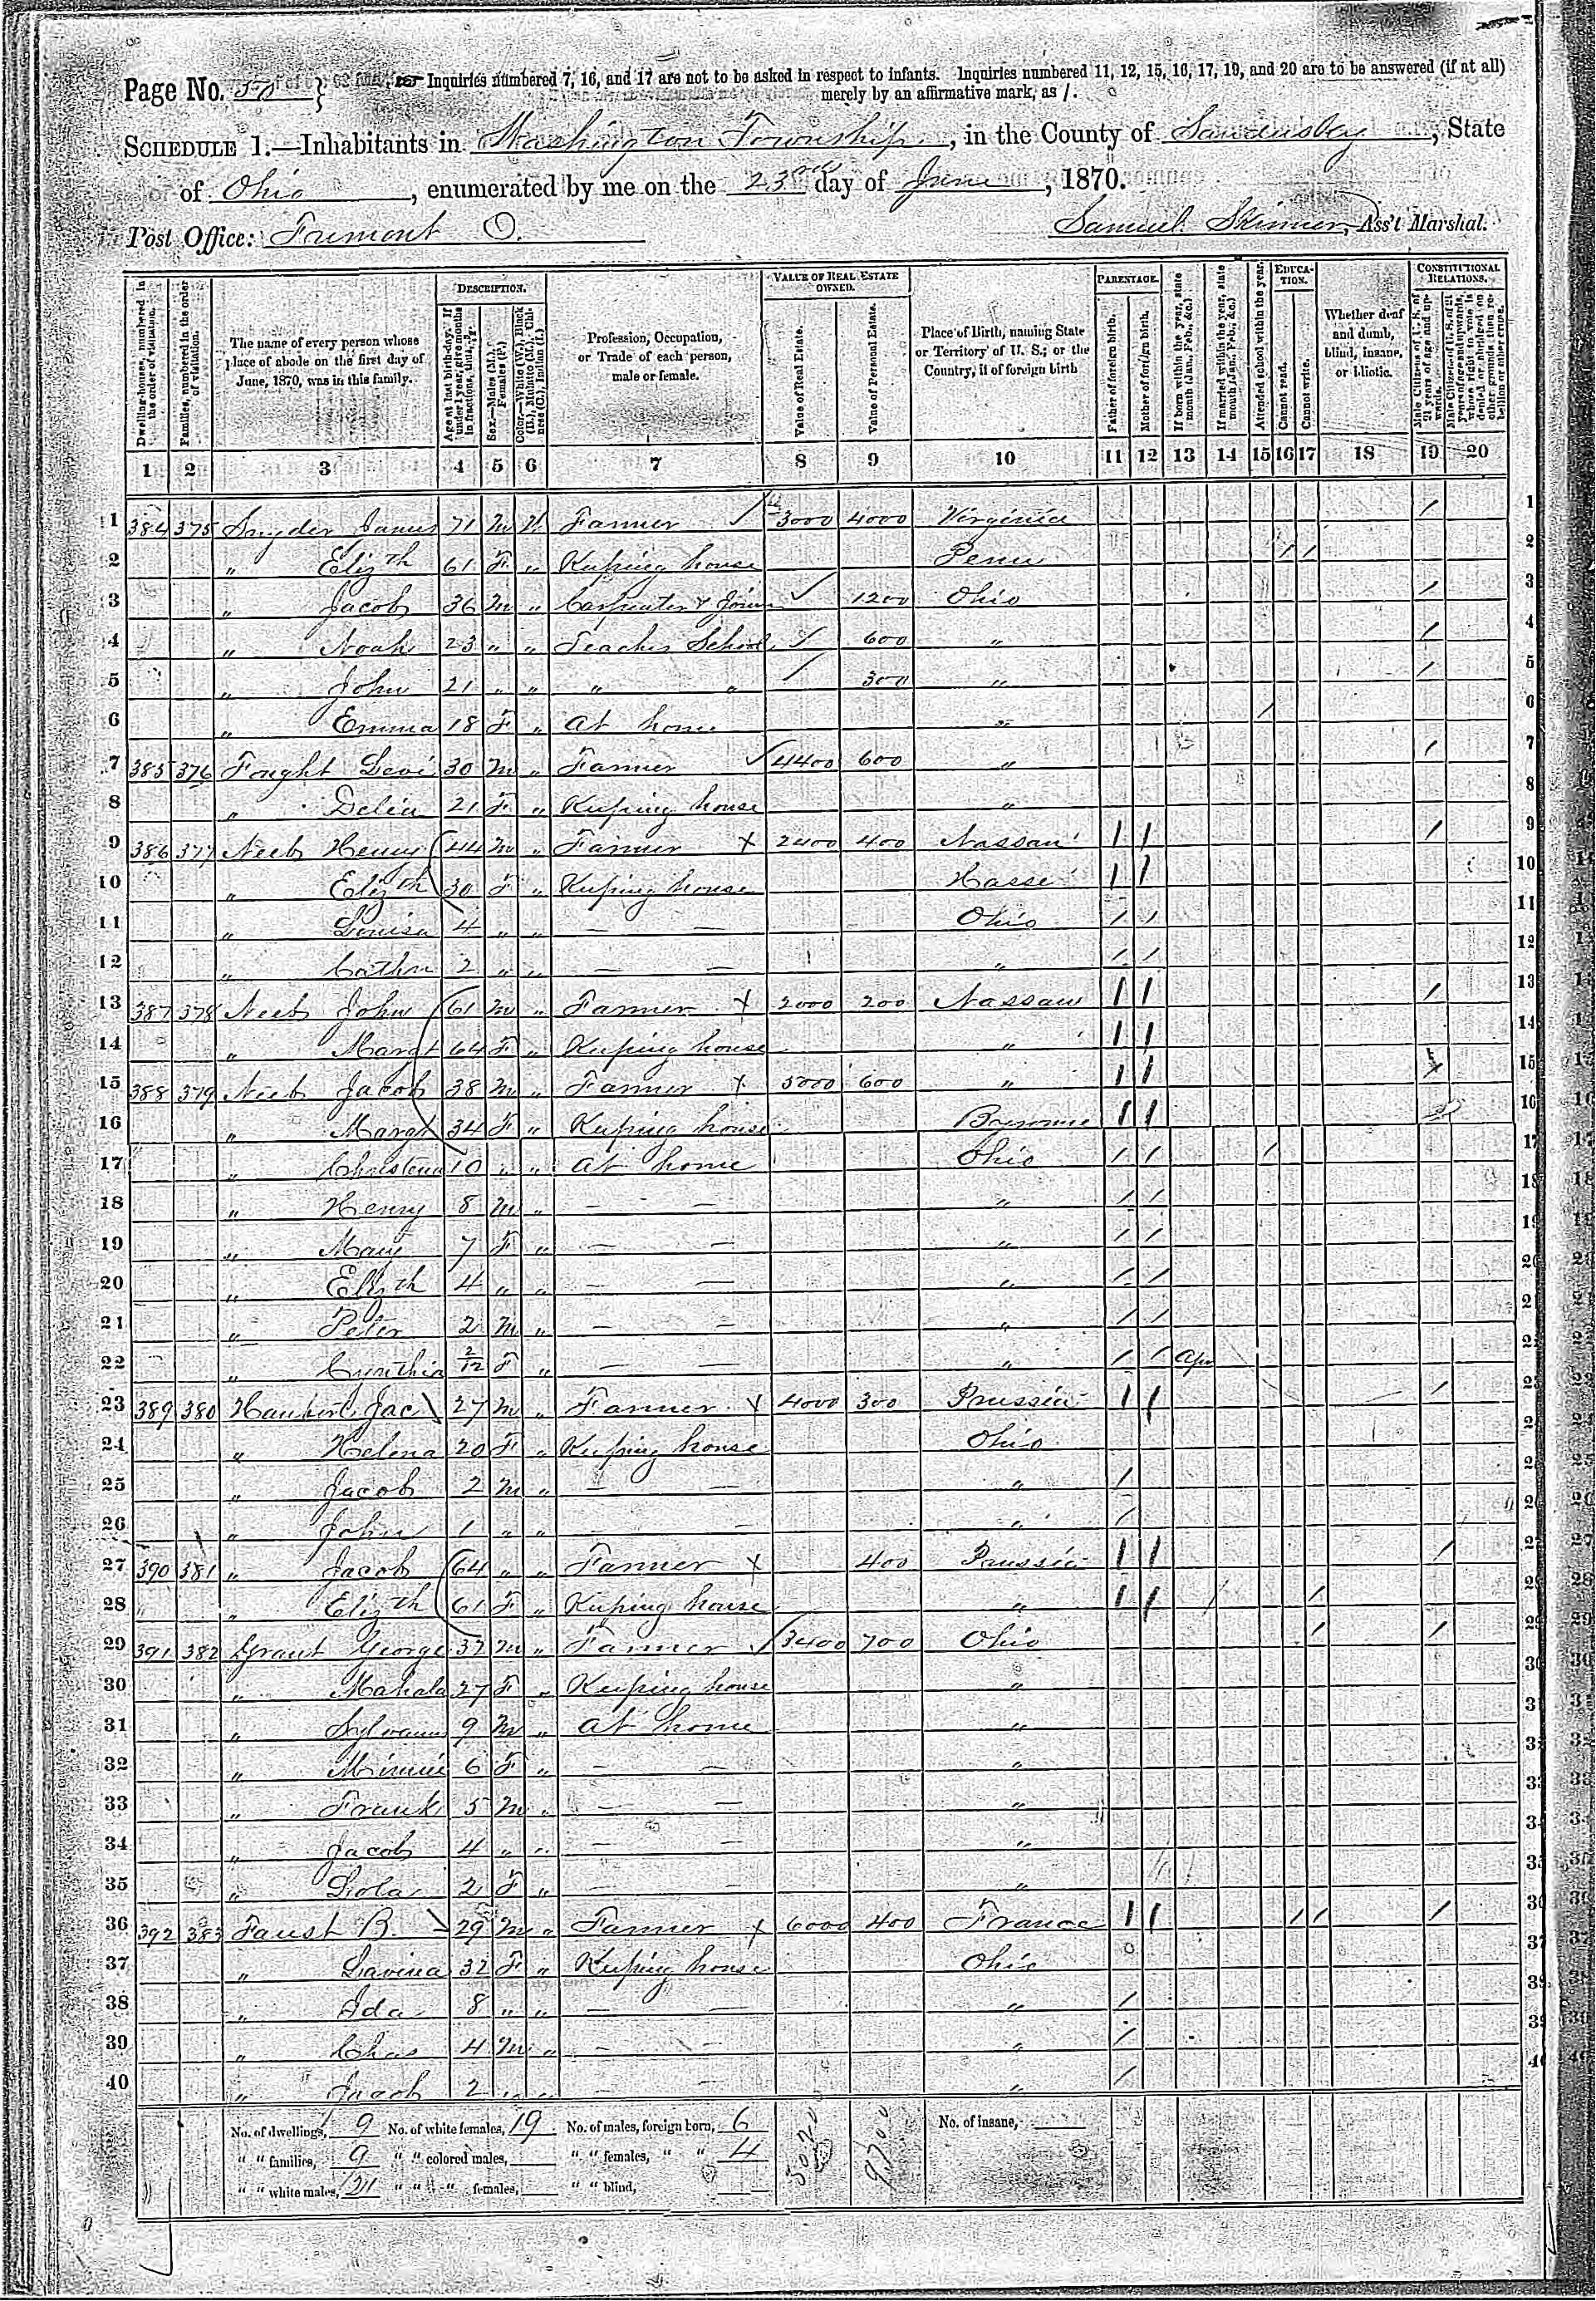 Page No. 50 } Inquiries numbered 7, 16, and 17 are not to be asked in respect to infants. Inquiries numbered 11, 12, 15, 16, 17, 19, and 20 are to be answered (if at all)
merely by an affirmative mark, as /.
SCHEDULE 1.—Inhabitants in Washington Township, in the County of Sandusky, State
of Ohio, enumerated by me on the 23rd day of June, 1870.
Post Office: Fremont O. Samuel Skinner, Ass't Marshal.
Dwelling-houses, numbered in the order of visitation.
Families, numbered in the order of visitation.
The name of every person whose place of abode on the first day of June, 1870, was in this family.
DESCRIPTION.
Age at last birth-day. If under 1 year, give months in fractions, thus,
Sex.—Males (M.), Females (F.)
Color.—White (W.), Black (B.), Mulatto (M.), Chinese (C.), Indian (I.)
Profession, Occupation, or Trade of each person, male or female.
VALUE OF REAL ESTATE OWNED.
Value of Real Estate.
Value of Personal Estate.
Place of Birth, naming State or Territory of U. S.; or the Country, if of foreign birth
PARENTAGE.
Father of foreign birth.
Mother of foreign birth.
If born within the year, state month (Jan., Feb., &c.)
If married within the year, state month (Jan., Feb., &c.)
Attended school within the year.
EDUCATION.
Cannot read.
Cannot write.
Whether deaf and dumb, blind, insane, or idiotic.
CONSTITUTIONAL RELATIONS.
Male Citizens of U. S. of 21 years of age and upwards.
1 2 3 4 5 6 7 8 9 10 11 12 13 14 15 16 17 18 19 20
1 384 375 Snyder James 71 M W Farmer 3000 4000 Virginia / 1
2 " Elizth 61 F " Keeping house Penn / / 2
3 " Jacob 36 M " Carpenter & Joiner 1200 Ohio / 3
4 " Noah 23 " " Teaches School 600 " / 4
5 " John 21 " " " " 300 " / 5
6 " Emma 18 F " At home " / 6
7 385 376 Fought Levi 30 M " Farmer 4400 600 " / 7
8 " Delia 21 F " Keeping house " 8
9 386 377 Neeb Henry 44 M " Farmer X 2400 400 Nassau / / / 9
10 " Elizth 30 F " Keeping house Hasse / / 10
11 " Louisa 4 " " — — Ohio / / 11
12 " Cathn 2 " " — — " / / 12
13 387 378 Neeb John 61 M " Farmer X 2000 200 Nassau / / / 13
14 " Margt 64 F " Keeping house " / / 14
15 388 379 Neeb Jacob 38 M " Farmer X 5000 600 " / / 15
16 " Margt 34 F " Keeping house / / 16
17 " Christena 10 " " At home Ohio / / / 17
18 " Henry 8 M " — — " / / 18
19 " Mary 7 F " — — " / / 19
20 " Elizth 4 " " — — " / /
21 " Peter 2 M " — — " / /
22 " Cynthia 2/12 F " — — " / / Apr
23 389 380 Jac 27 M " Farmer X 4000 300 Prussia / / /
24 " Helena 20 F " Keeping house Ohio
25 " Jacob 2 M " — — " /
26 " John 1 " " — — " /
27 390 381 " Jacob 64 " " Farmer X 400 Prussia / / /
28 " Elizth 61 F " Keeping house " / / /
29 391 382 Grant George 32 M " Farmer 3400 700 Ohio / /
30 " Mahala 27 F " Keeping house "
31 " Sylvanus 9 M " At home "
32 " Minnie 6 F " — — "
33 " Frank 5 M " — — "
34 " Jacob 4 " " — — "
35 " Lola 2 F " — — "
36 392 383 Faust B. 29 M " Farmer X 6000 400 France / / / / /
37 " Lavina 32 F " Keeping house Ohio
38 " Ida 8 " " — — " /
39 " Chas 4 M " — — " /
40 " Jacob 2 " " — — " /
No. of dwellings, 9 No. of white females, 19 No. of males, foreign born, 6 No. of insane,
" " families, 9 " " colored males, " " females, " " 4
" " white males, 21 " " " females, " " blind,